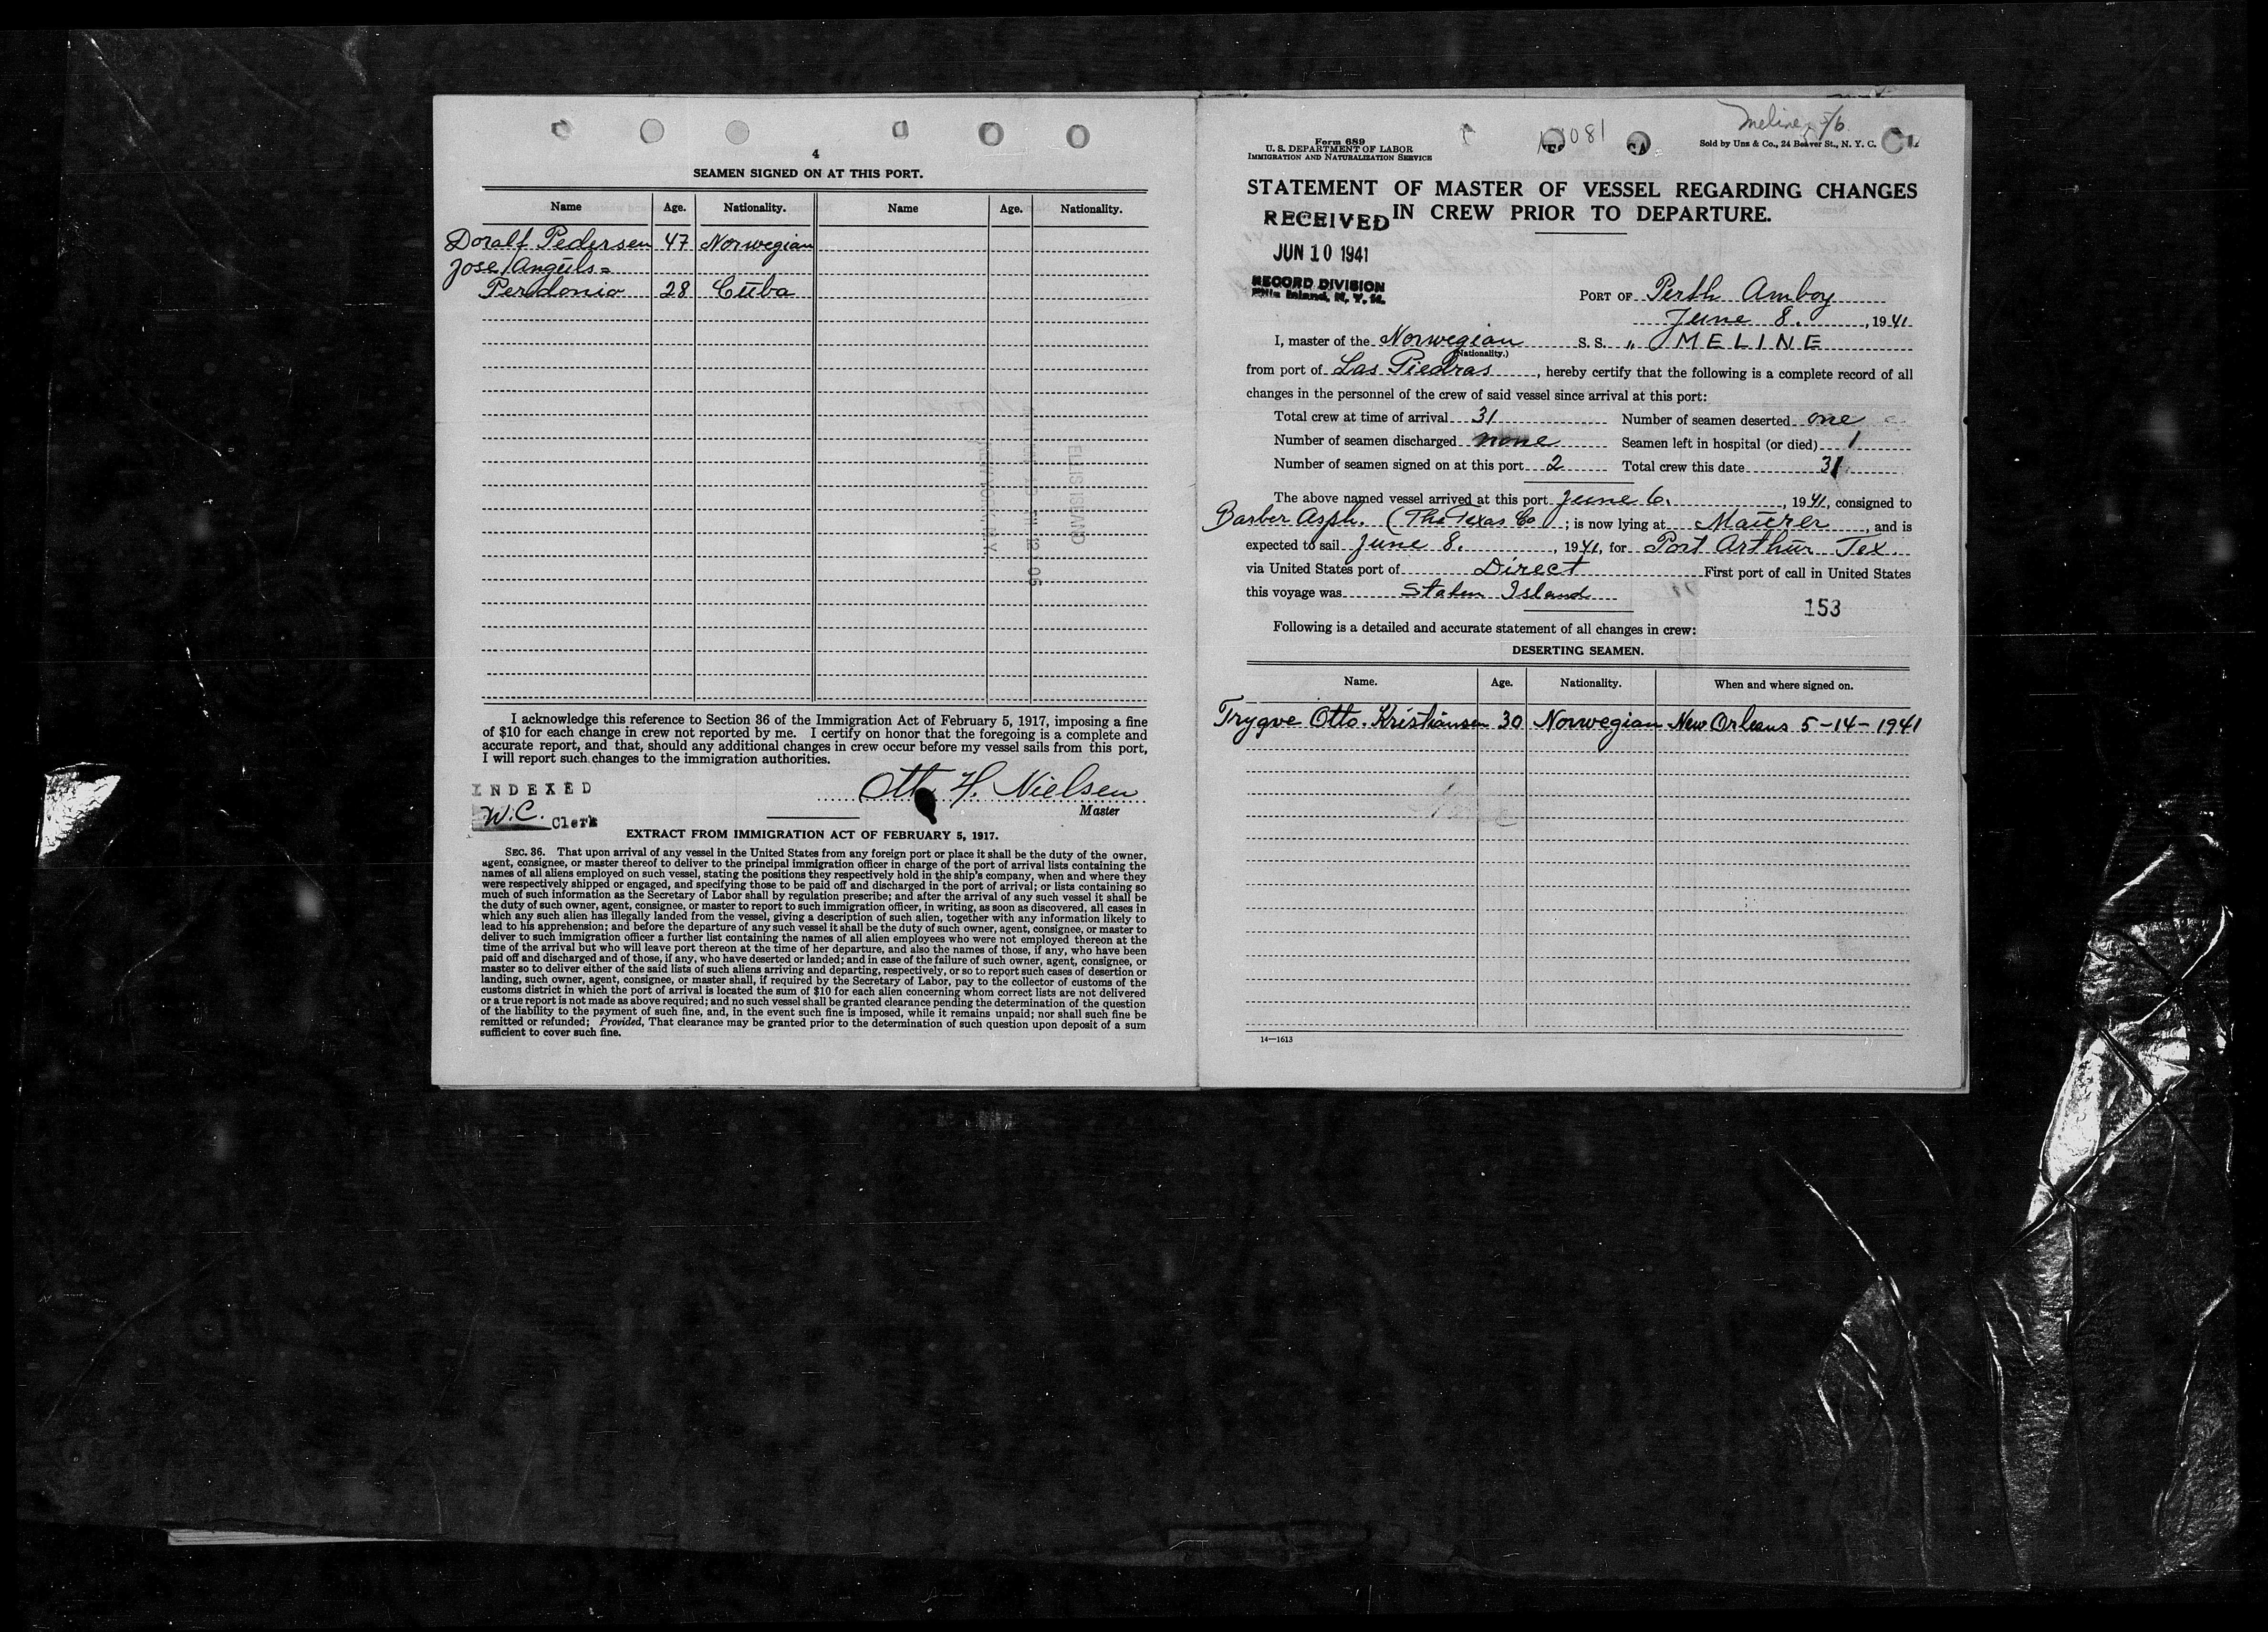 4
SEAMEN SIGNED ON AT THIS PORT.
Name Age. Nationality. Name Age. Nationality.
Doralf Pedersen 47 Norwegian
Jose Anguls=
Perdonio 28 Cuba
I acknowledge this reference to Section 36 of the Immigration Act of February 5, 1917, imposing a fine
of $10 for each change in crew not reported by me. I certify on honor that the foregoing is a complete and
accurate report, and that, should any additional changes in crew occur before my vessel sails from this port,
I will report such changes to the immigration authorities.
INDEXED
W.C. Clerk
Otto H. Nielsen
Master
ELLIS ISLAND
EXTRACT FROM IMMIGRATION ACT OF FEBRUARY 5, 1917.
SEC. 36. That upon arrival of any vessel in the United States from any foreign port or place it shall be the duty of the owner,
agent, consignee, or master thereof to deliver to the principal immigration officer in charge of the port of arrival lists containing the
names of all aliens employed on such vessel, stating the positions they respectively hold in the ship's company, when and where they
were respectively shipped or engaged, and specifying those to be paid off and discharged in the port of arrival; or lists containing so
much of such information as the Secretary of Labor shall by regulation prescribe; and after the arrival of any such vessel it shall be
the duty of such owner, agent, consignee, or master to report to such immigration officer, in writing, as soon as discovered, all cases in
which any such alien has illegally landed from the vessel, giving a description of such alien, together with any information likely to
lead to his apprehension; and before the departure of any such vessel it shall be the duty of such owner, agent, consignee, or master to
deliver to such immigration officer a further list containing the names of all alien employees who were not employed thereon at the
time of the arrival but who will leave port thereon at the time of her departure, and also the names of those, if any, who have been
paid off and discharged and of those, if any, who have deserted or landed; and in case of the failure of such owner, agent, consignee, or
master so to deliver either of the said lists of such aliens arriving and departing, respectively, or so to report such cases of desertion or
landing, such owner, agent, consignee, or master shall, if required by the Secretary of Labor, pay to the collector of customs of the
customs district in which the port of arrival is located the sum of $10 for each alien concerning whom correct lists are not delivered
or a true report is not made as above required; and no such vessel shall be granted clearance pending the determination of the question
of the liability to the payment of such fine, and, in the event such fine is imposed, while it remains unpaid; nor shall such fine be
remitted or refunded; Provided, That clearance may be granted prior to the determination of such question upon deposit of a sum
sufficient to cover such fine.
Form 689
U. S. DEPARTMENT OF LABOR
IMMIGRATION AND NATURALIZATION SERVICE
Meline 5/6
Sold by Unz & Co., 24 Beaver St., N. Y. C.
STATEMENT OF MASTER OF VESSEL REGARDING CHANGES
IN CREW PRIOR TO DEPARTURE.
RECEIVED
JUN 10 1941
RECORD DIVISION
Ellis Island, N. Y. H.
PORT OF Perth Amboy
June 8., 1941.
I, master of the Norwegian S. S. „ MELINE
(Nationality.)
from port of Las Piedras, hereby certify that the following is a complete record of all
changes in the personnel of the crew of said vessel since arrival at this port:
Total crew at time of arrival 31 Number of seamen deserted one
Number of seamen discharged none Seamen left in hospital (or died) 1
Number of seamen signed on at this port 2 Total crew this date 31
The above named vessel arrived at this port June 6., 1941, consigned to
Barber Asph. (The Texas Co; is now lying at Maurer, and is
expected to sail June 8., 1941, for Port Arthur Tex.
via United States port of Direct First port of call in United States
this voyage was Staten Island
153
Following is a detailed and accurate statement of all changes in crew:
DESERTING SEAMEN.
Name. Age. Nationality. When and where signed on.
Trygve Otto. Kristiansen 30 Norwegian New Orleans 5-14-1941
14—1613